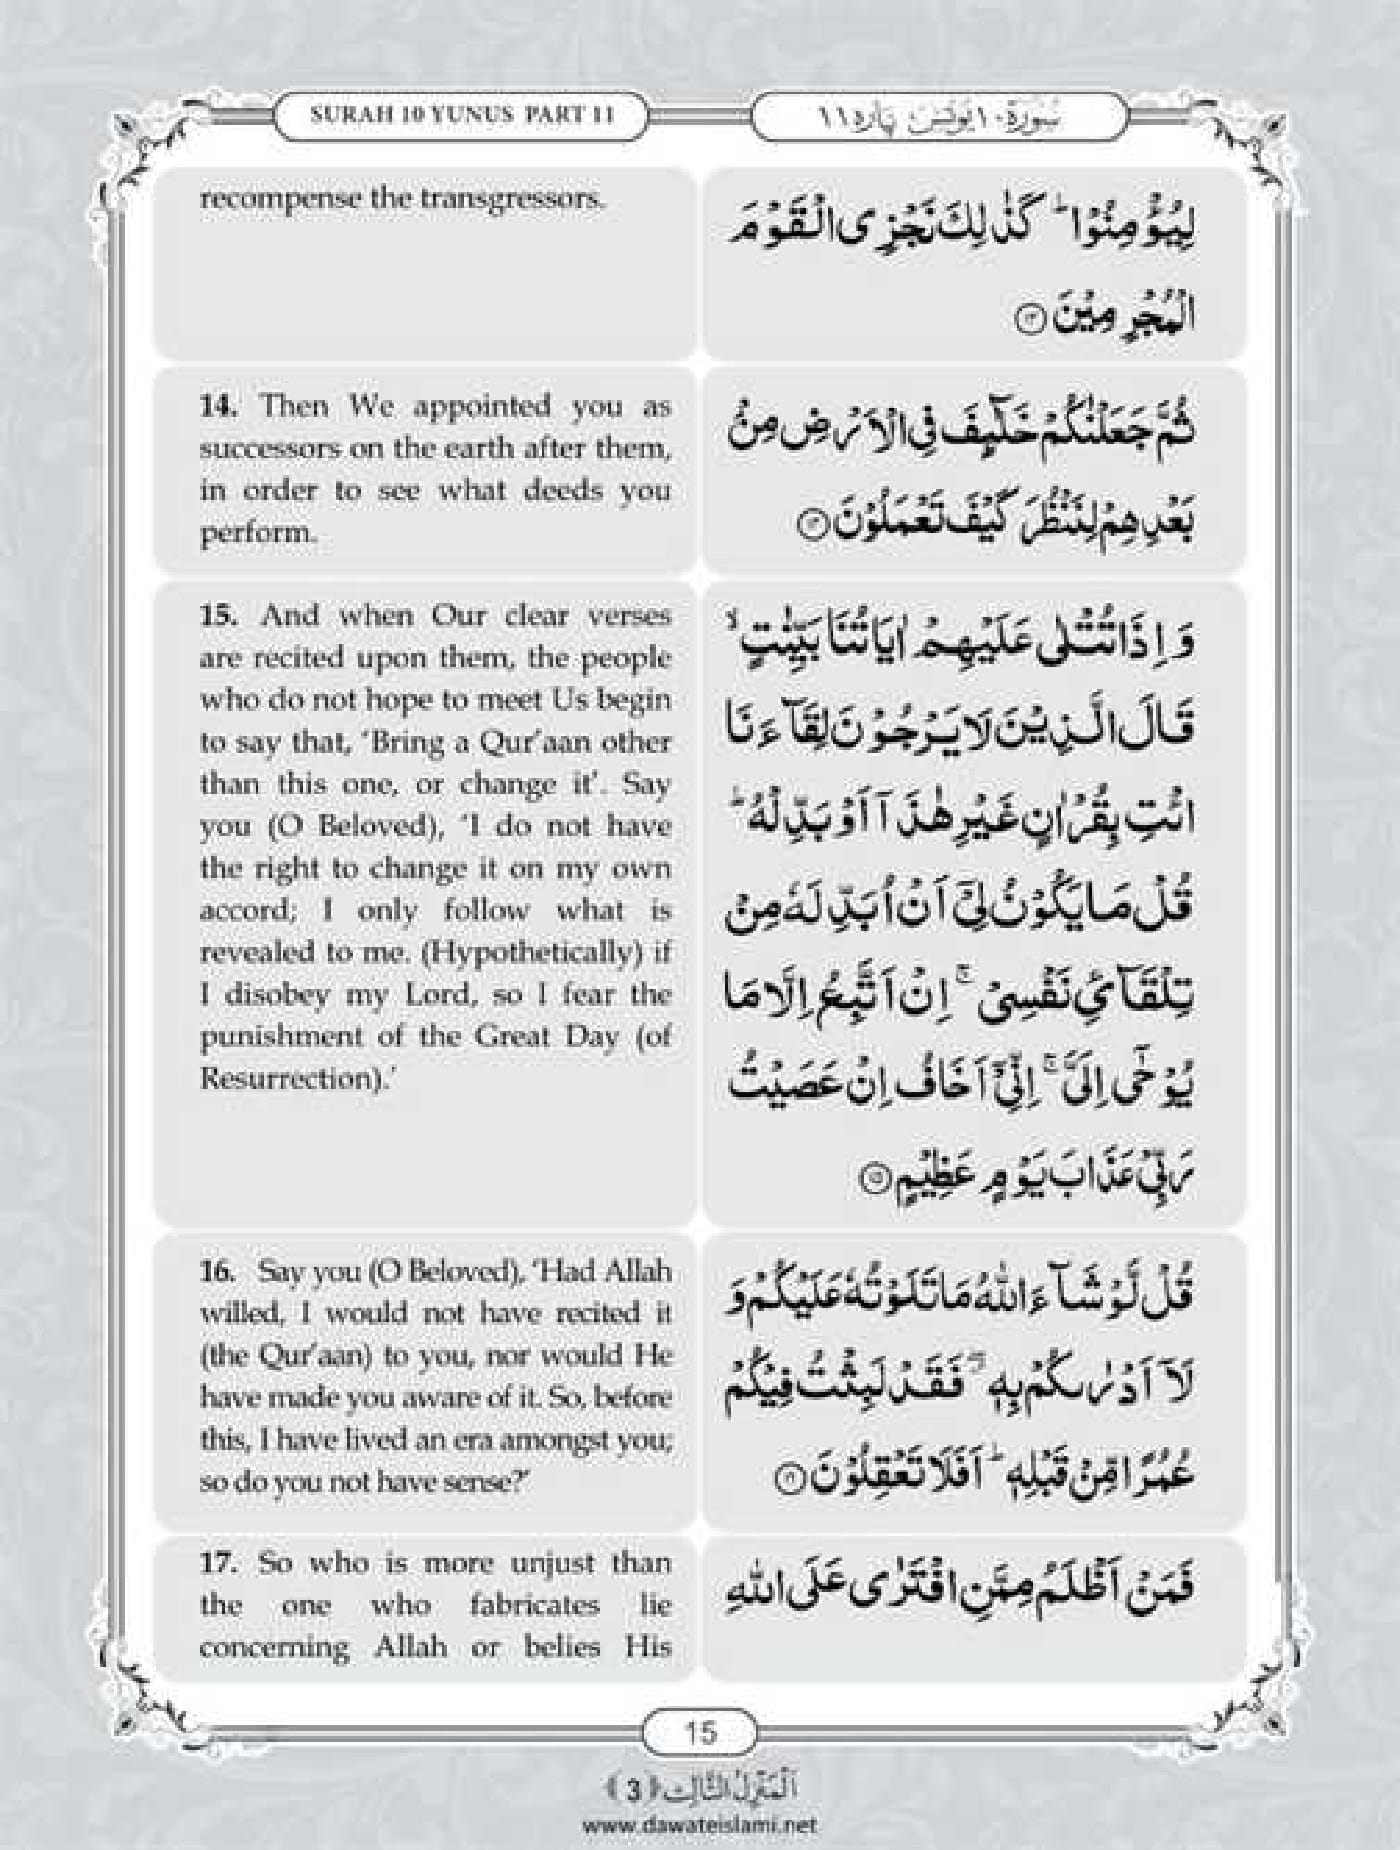 SURAH 10 YUNUS PART 11
سُوْرَة ١٠ يُوْنُس پاره ١١
recompense the transgressors.
لِيُؤْمِنُوْا ؕ كَذٰلِكَ نَجْزِی الْقَوْمَ
الْمُجْرِمِيْنَ ﴿۱۳﴾
14. Then We appointed you as
successors on the earth after them,
in order to see what deeds you
perform.
ثُمَّ جَعَلْنٰكُمْ خَلٰٓئِفَ فِی الْاَرْضِ مِنْۢ
بَعْدِهِمْ لِنَنْظُرَ كَيْفَ تَعْمَلُوْنَ ﴿۱۴﴾
15. And when Our clear verses
are recited upon them, the people
who do not hope to meet Us begin
to say that, ‘Bring a Qur’aan other
than this one, or change it’. Say
you (O Beloved), ‘I do not have
the right to change it on my own
accord; I only follow what is
revealed to me. (Hypothetically) if
I disobey my Lord, so I fear the
punishment of the Great Day (of
Resurrection).’
وَ اِذَا تُتْلٰی عَلَيْهِمْ اٰيَاتُنَا بَيِّنٰتٍ ۙ
قَالَ الَّذِيْنَ لَا يَرْجُوْنَ لِقَآءَنَا
ائْتِ بِقُرْاٰنٍ غَيْرِ هٰذَاۤ اَوْ بَدِّلْهُ ؕ
قُلْ مَا يَكُوْنُ لِیْۤ اَنْ اُبَدِّلَهٗ مِنْ
تِلْقَآئِ نَفْسِیْ ۚ اِنْ اَتَّبِعُ اِلَّا مَا
يُوْحٰۤی اِلَیَّ ۚ اِنِّیْۤ اَخَافُ اِنْ عَصَيْتُ
رَبِّیْ عَذَابَ يَوْمٍ عَظِيْمٍ ﴿۱۵﴾
16. Say you (O Beloved), ‘Had Allah
willed, I would not have recited it
(the Qur’aan) to you, nor would He
have made you aware of it. So, before
this, I have lived an era amongst you;
so do you not have sense?’
قُلْ لَّوْ شَآءَ اللّٰهُ مَا تَلَوْتُهٗ عَلَيْكُمْ وَ
لَاۤ اَدْرٰىكُمْ بِهٖ ۖ فَقَدْ لَبِثْتُ فِيْكُمْ
عُمُرًا مِّنْ قَبْلِهٖ ؕ اَفَلَا تَعْقِلُوْنَ ﴿۱۶﴾
17. So who is more unjust than
the one who fabricates lie
concerning Allah or belies His
فَمَنْ اَظْلَمُ مِمَّنِ افْتَرٰی عَلَی اللّٰهِ
15
اَلْمَنْزِلُ الثَّالِث ﴿3﴾
www.dawateislami.net